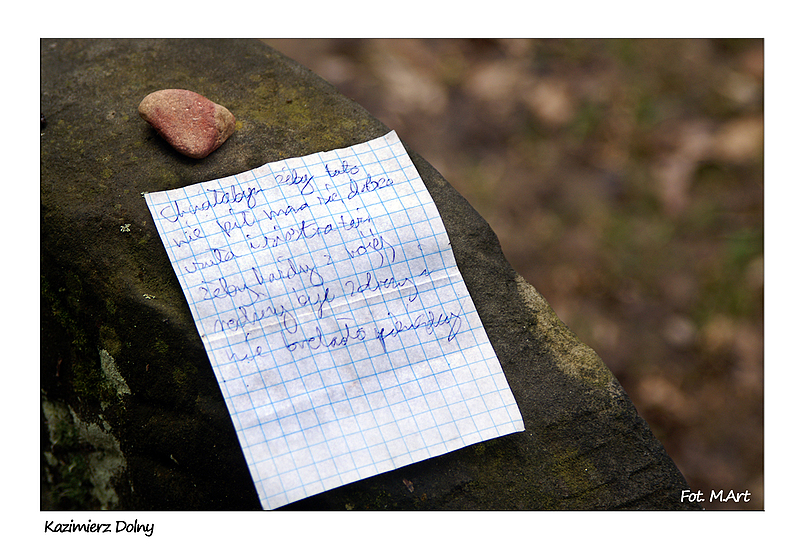 chciałabym żeby tato
nie pił mama się dobrze
czuła i siostra też
żeby każdy z mojej
rodziny był zdrowy i
nie brakło pieniędzy
Fot. M.Art
Kazimierz Dolny